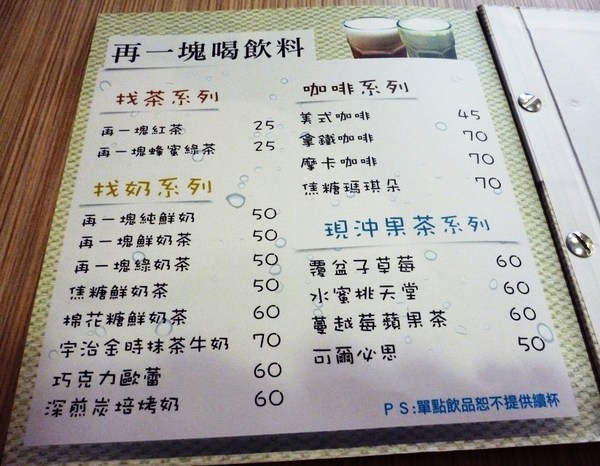 再一塊喝飲料
找茶系列
再一塊紅茶 25
再一塊蜂蜜綠茶 25
找奶系列
再一塊純鮮奶 50
再一塊鮮奶茶 50
再一塊綠奶茶 50
焦糖鮮奶茶 50
棉花糖鮮奶茶 60
宇治金時抹茶牛奶 70
巧克力歐蕾 60
深煎炭焙烤奶 60
咖啡系列
美式咖啡 45
拿鐵咖啡 70
摩卡咖啡 70
焦糖瑪琪朵 70
現沖果茶系列
覆盆子草莓 60
水蜜桃天堂 60
蔓越莓蘋果茶 60
可爾必思 50
PS:單點飲品恕不提供續杯